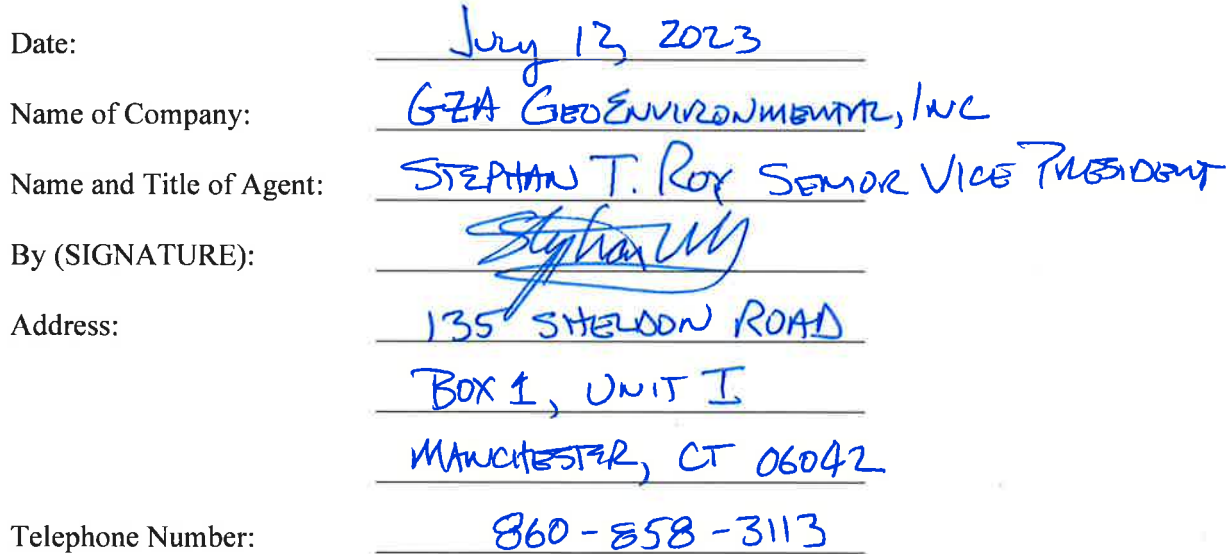 Date: July 12, 2023
Name of Company: GZA GEOENVIRONMENTAL, INC
Name and Title of Agent: STEPHAN T. ROY SENIOR VICE PRESIDENT
By (SIGNATURE): Stephan
Address: 135 SHELDON ROAD
BOX 1, UNIT I
MANCHESTER, CT 06042
Telephone Number: 860-858-3113